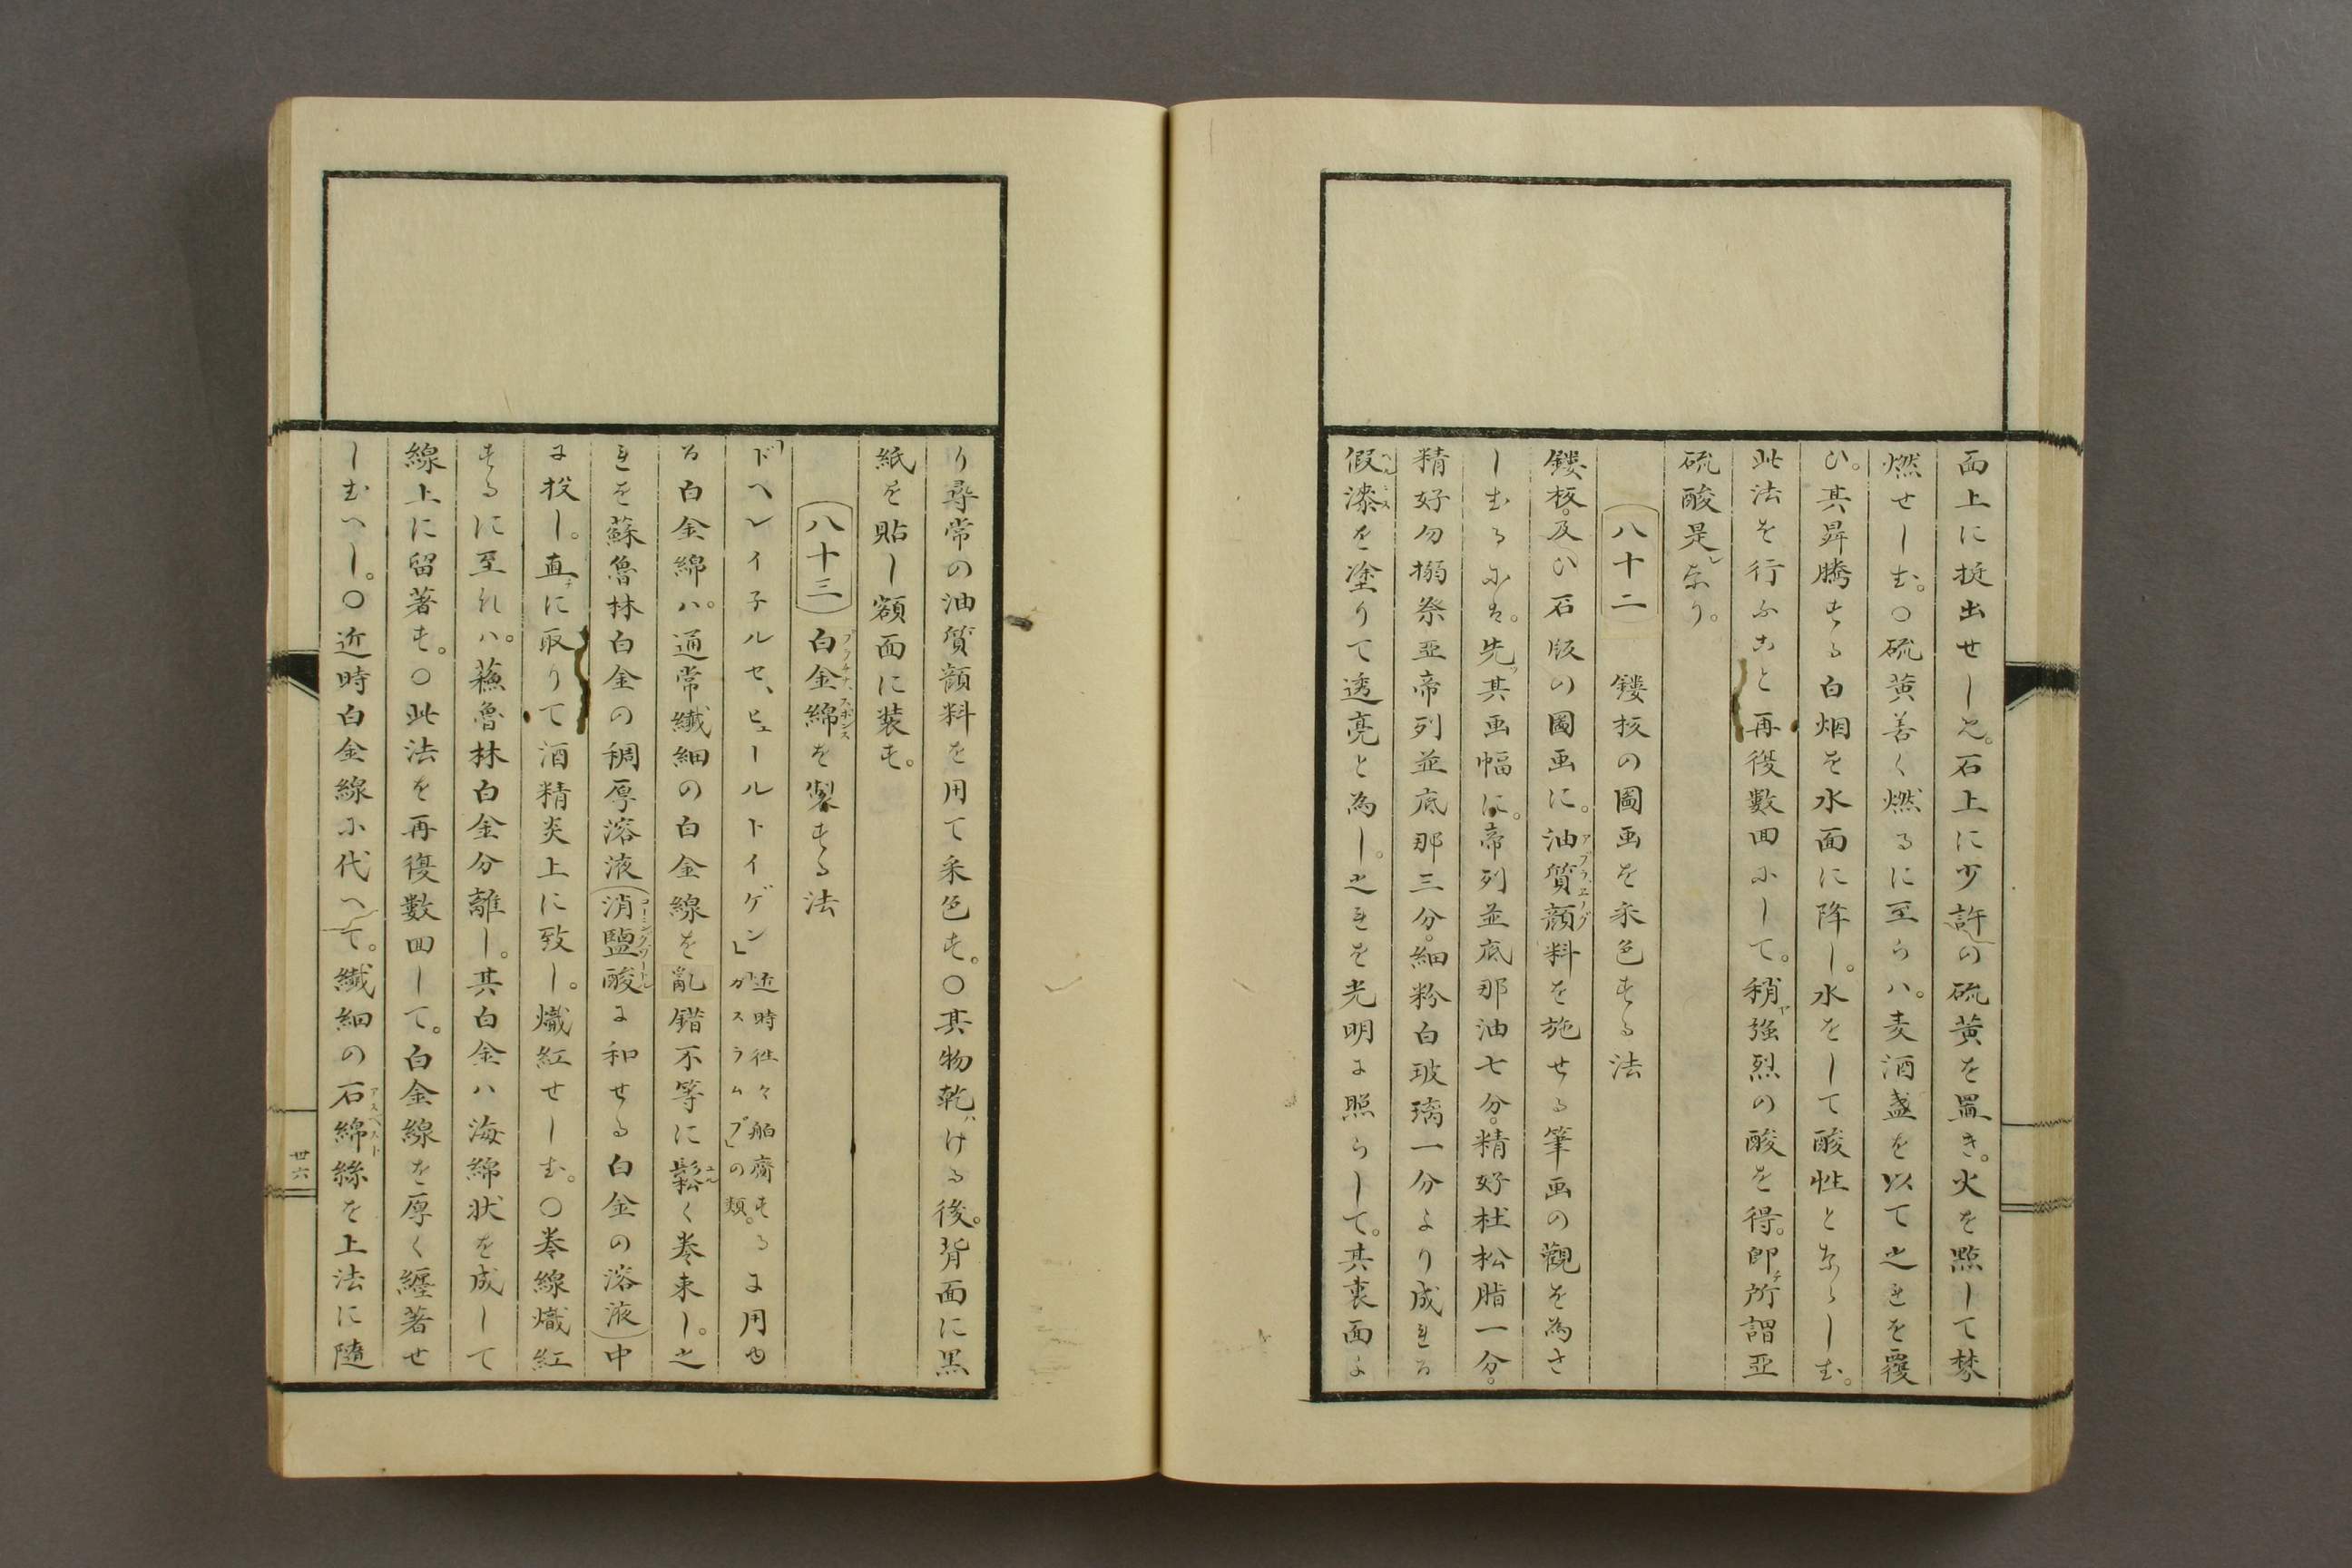 面上に挺出せしめ。石上に少許の硫黄を置き。火を點して焚
燃せしむ。○硫黄善く燃るに至らハ。麦酒盞を以て之れを覆
ひ。其昇騰する白烟を水面に降し。水をして酸性とならしむ。
此法を行ふこと再復數回にして。稍強烈の酸を得。即所謂亜
硫酸是なり。
(八十二) 鏤板の圖画を彩色する法
鏤板。及ひ石版の圖画に。油質顔料を施せる筆画の觀を為さ
しむるには。先其画幅に。帝列並底那油七分。精好杜松脂一分。
精好勿搦祭亜帝列並底那三分。細粉白玻璃一分より成れる
假漆を塗りて透亮と為し。之れを光明に照らして。其裏面よ
り尋常の油質顔料を用て彩色す。○其物乾ける後。背面に黒
紙を貼し額面に装す。
(八十三) 白金綿を製する法
「ドヘレイ子ルセ、ヒュールトイゲン」近時往々舶齎する「ガスラムプ」の類。に用ゆ
る白金綿ハ。通常纖細の白金線を亂錯不等に鬆く巻束し。之
れを蘇魯林白金の稠厚溶液(消鹽酸に和せる白金の溶液)中
に投し。直に取りて酒精炎上に致し。熾紅せしむ。○巻線熾紅
するに至れハ。蘓魯林白金分離し。其白金ハ海綿状を成して
線上に留著す。○此法を再復數回して。白金線を厚く纒著せ
しむへし。○近時白金線に代へて。纖細の石綿絲を上法に隨
卅六